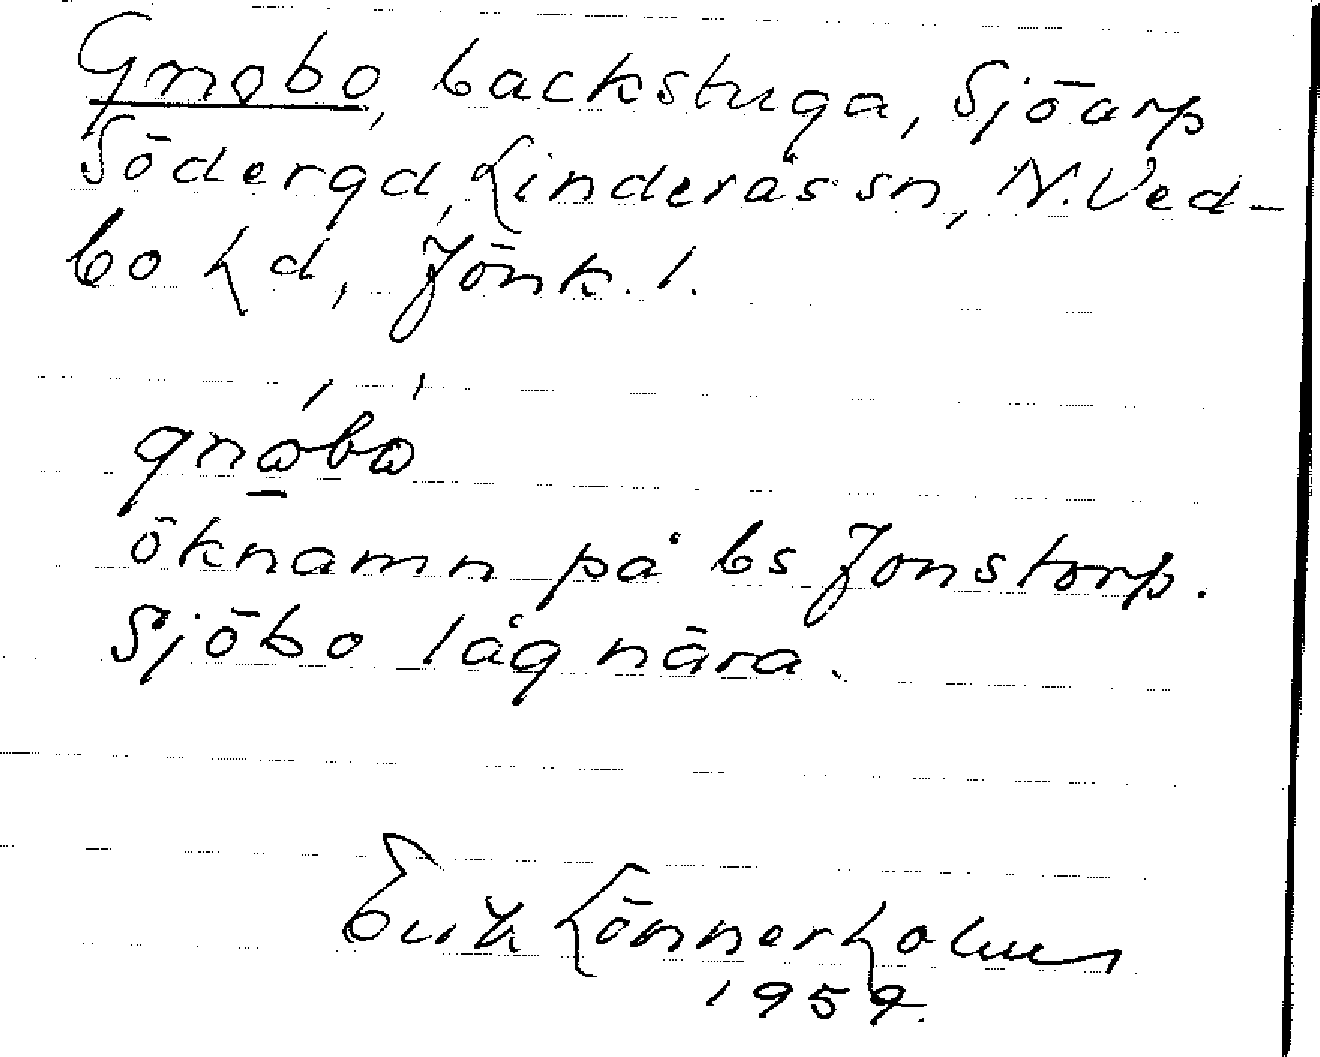 Gnobo, backstuga, Sjöarp
Södergd, Linderås sn, N. Ved-
bo hd, Jönk. l.
gnωbω
öknamn på bs Jonstorp.
Sjöbo låg nära.
Erik Lönnerholm
1959.